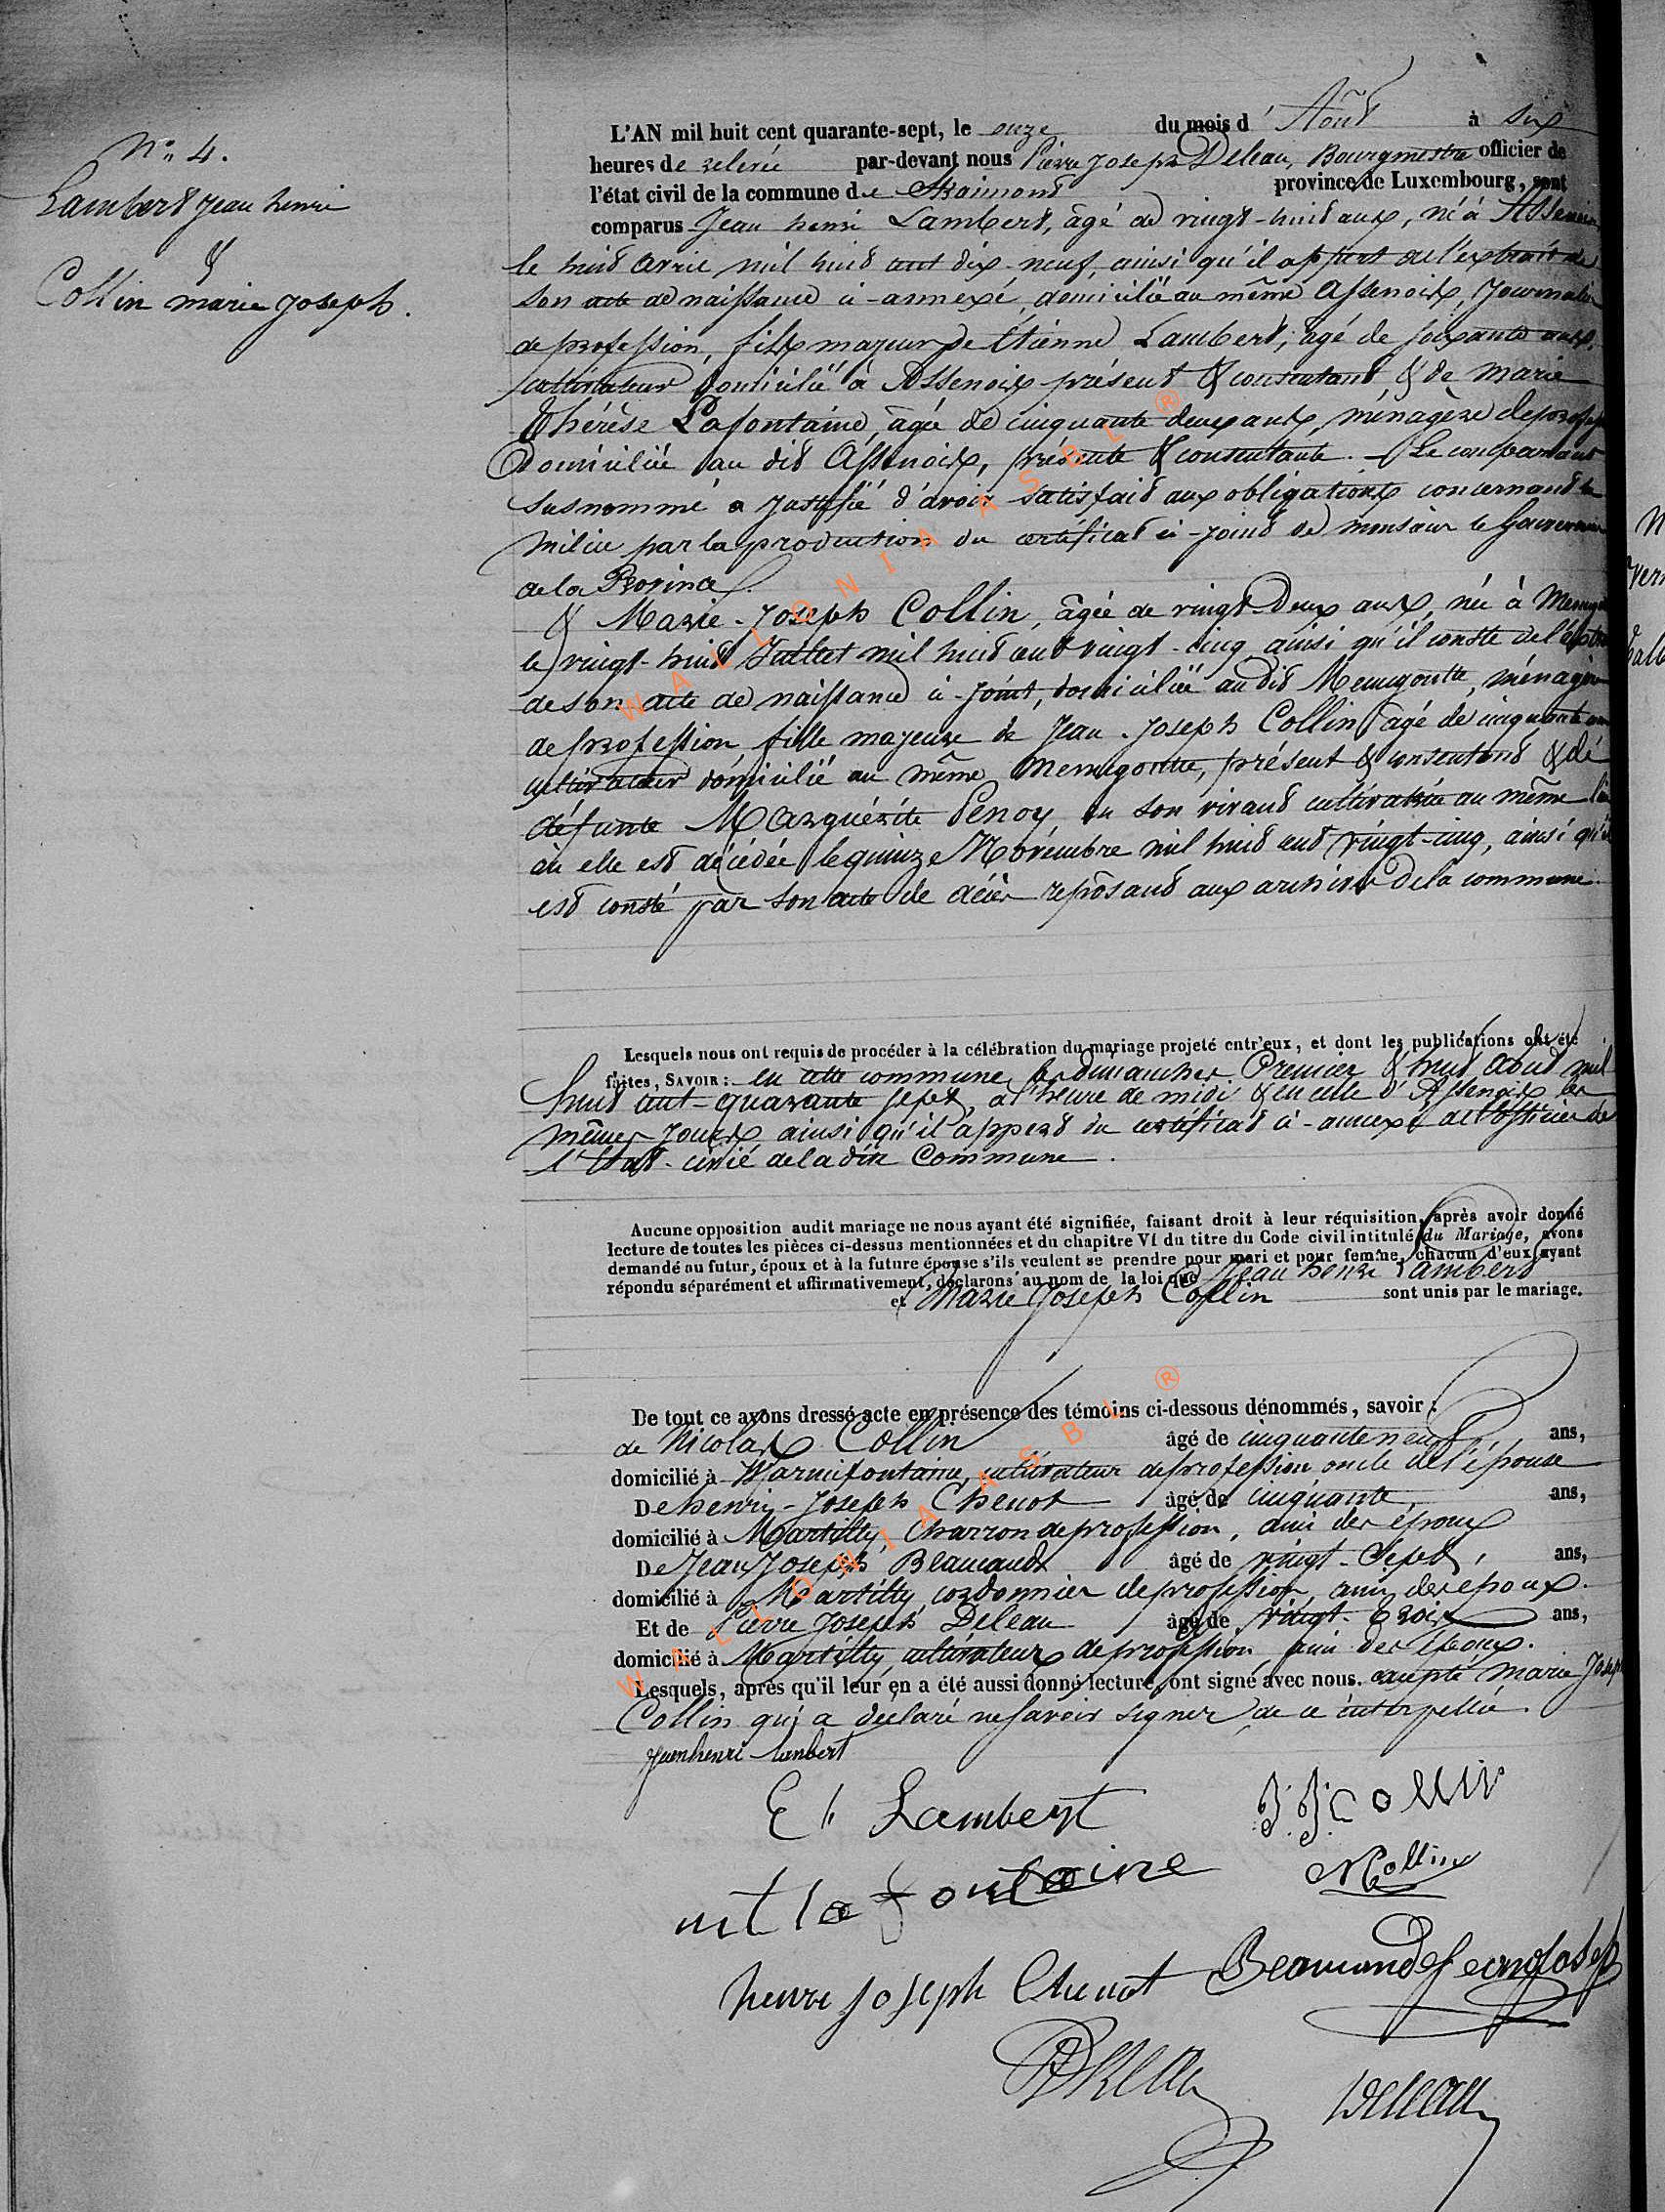 N° 4.
Lambert Jean henri
&
Collin marie joseph.
L'AN mil huit cent quarante-sept, le onze du mois d' Août à six
heures de relevée par-devant nous Pierre Joseph Deleau, Bourgmestre officier de
l'état civil de la commune de Straimont province de Luxembourg, sont
comparus Jean henri Lambert, âgé de vingt-huit ans, né à Assenois
le huit avril mil huit cent dix-neuf, ainsi qu'il appert de l'extrait de
son acte de naissance ci-annexé, domicilié au même Assenois, Journalier
de profession, fils majeur de Étienne Lambert, âgé de soixante ans,
cultivateur domicilié à Assenois présent & consentant & de marie
Thérèse Lafontaine, âgée de cinquante deux ans, ménagère de profession
Domiciliée au dit Assenois, présente & consentante. - Le comparant
susnommé a justifié d'avoir satisfait aux obligations concernant la
milice par la production du certificat ci-joint de monsieur le Gouverneur
de la Province.
& Marie-Joseph Collin, âgée de vingt-Deux ans, née à Menugoutte
le vingt-huit Juillet mil huit cent vingt-cinq ainsi qu'il conste de l'extrait
de son acte de naissance ci-joint, domiciliée au dit Menugoutte, ménagère
de profession fille majeure de Jean-Joseph Collin âgé de cinquante ans
cultivateur domicilié au même Menugoutte, présent & consentant & de
défunte Marguérite Penoy en son vivant cultivatrice au même lieu
où elle est décédée le quinze Novembre mil huit cent vingt-cinq, ainsi qu'il
est consté par son acte de décès reposant aux archives de la commune
Lesquels nous ont requis de procéder à la célébration du mariage projeté entr'eux, et dont les publications ont été
faites, SAVOIR: en cette commune les dimanches Premier & huit Aout mil
huit cent-quarante sept, à l'heure de midi & en celle d'Assenois les
mêmes jours ainsi qu'il appert du certificat ci-annexé de l'officier de
l'Etat-civil de la dite Commune.
Aucune opposition audit mariage ne nous ayant été signifiée, faisant droit à leur réquisition, après avoir donné
lecture de toutes les pièces ci-dessus mentionnées et du chapitre VI du titre du Code civil intitulé du Mariage, avons
demandé au futur, époux et à la future épouse s'ils veulent se prendre pour mari et pour femme, chacun d'eux ayant
répondu séparément et affirmativement, déclarons au nom de la loi que Jean henri Lambert
et Marie Joseph Collin sont unis par le mariage.
De tout ce avons dressé acte en présence des témoins ci-dessous dénommés, savoir:
de Nicolas Collin âgé de cinquante neuf ans,
domicilié à Warmifontaine, cultivateur de profession oncle de l'épouse
De henri-Joseph Chenot âgé de cinquante, ans,
domicilié à Martilly, Charron de profession, ami des époux
De Jean Joseph Beaumand âgé de vingt-Sept, ans,
domicilié à Martilly cordonnier de profession, ami des époux.
Et de Pierre Joseph Deleau âgé de vingt-trois ans,
domicilié à Martilly, cultivateur de profession, ami des époux.
Lesquels, après qu'il leur en a été aussi donné lecture, ont signé avec nous. excepté Marie Joseph
Collin qui a déclaré ne savoir signer de ce interpellée.
jeanhenri lambert
Et Lambert
J. J. Collin
mt lafontaine
NCollin
henri joseph Chenot
Beaumand jeanjoseph
PJ Deleau
Deleau
WALLONIA ASBL ®
WALLONIA ASBL ®